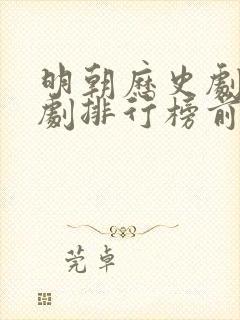 明朝历史劇
劇排行榜前
莞卓